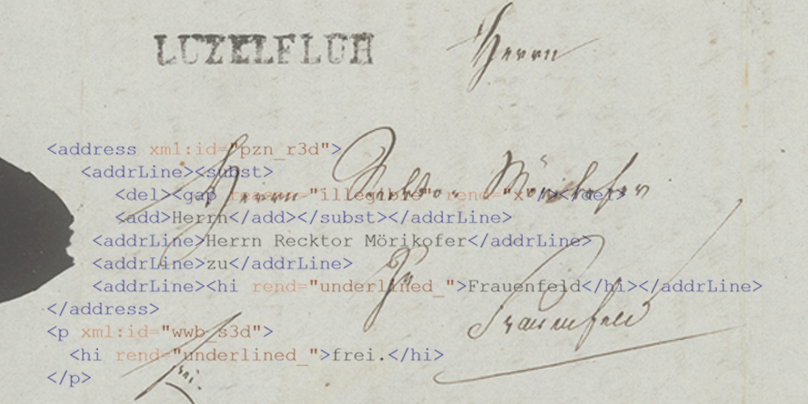 LUZELFLUH
Herrn
<address xml:id="pzn_r3d">
<addrLine><subst>
<del><gap reason="illegible" rend="x"/></del>
<add>Herrn</add></subst></addrLine>
<addrLine>Herrn Recktor Mörikofer</addrLine>
<addrLine>zu</addrLine>
<addrLine><hi rend="underlined_">Frauenfeld</hi></addrLine>
</address>
<p xml:id="wwb_s3d">
<hi rend="underlined_">frei.</hi>
</p>
Herrn Recktor Mörikofer
zu
Frauenfeld
frei.